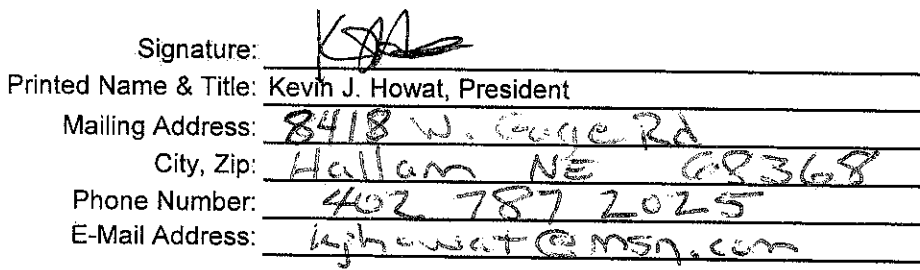 Signature:
Printed Name & Title: Kevin J. Howat, President
Mailing Address: 8418 W. Gage Rd
City, Zip: Hallam NE 68368
Phone Number: 402 787 2025
E-Mail Address: kjhowat@msn.com